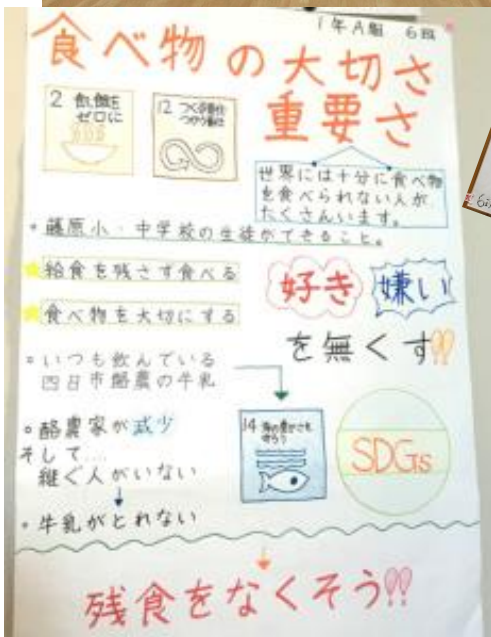 1年A組 6班
食べ物の大切さ
重要さ
2 飢餓を
ゼロに
12 つくる責任
つかう責任
世界には十分に食べ物
を食べられない人が
たくさんいます。
・藤原小・中学校の生徒ができること。
給食を残さず食べる
食べ物を大切にする
好き 嫌い
を無くす!!
・いつも飲んでいる
四日市酪農の牛乳
・酪農家が減少
そして...
継ぐ人がいない
・牛乳がとれない
14 海の豊かさを
守ろう
SDGs
残食をなくそう!!